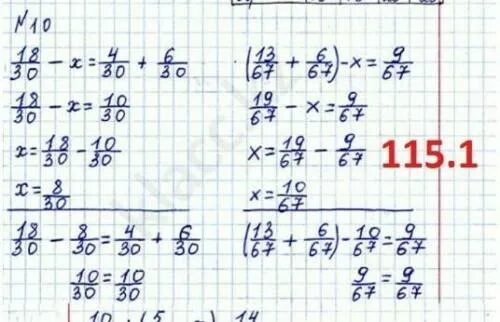 №10
18/30 - x = 4/30 + 6/30
18/30 - x = 10/30
x = 18/30 - 10/30
x = 8/30
18/30 - 8/30 = 4/30 + 6/30
10/30 = 10/30
(13/67 + 6/67) - x = 9/67
19/67 - x = 9/67
x = 19/67 - 9/67
x = 10/67
(13/67 + 6/67) - 10/67 = 9/67
9/67 = 9/67
115.1